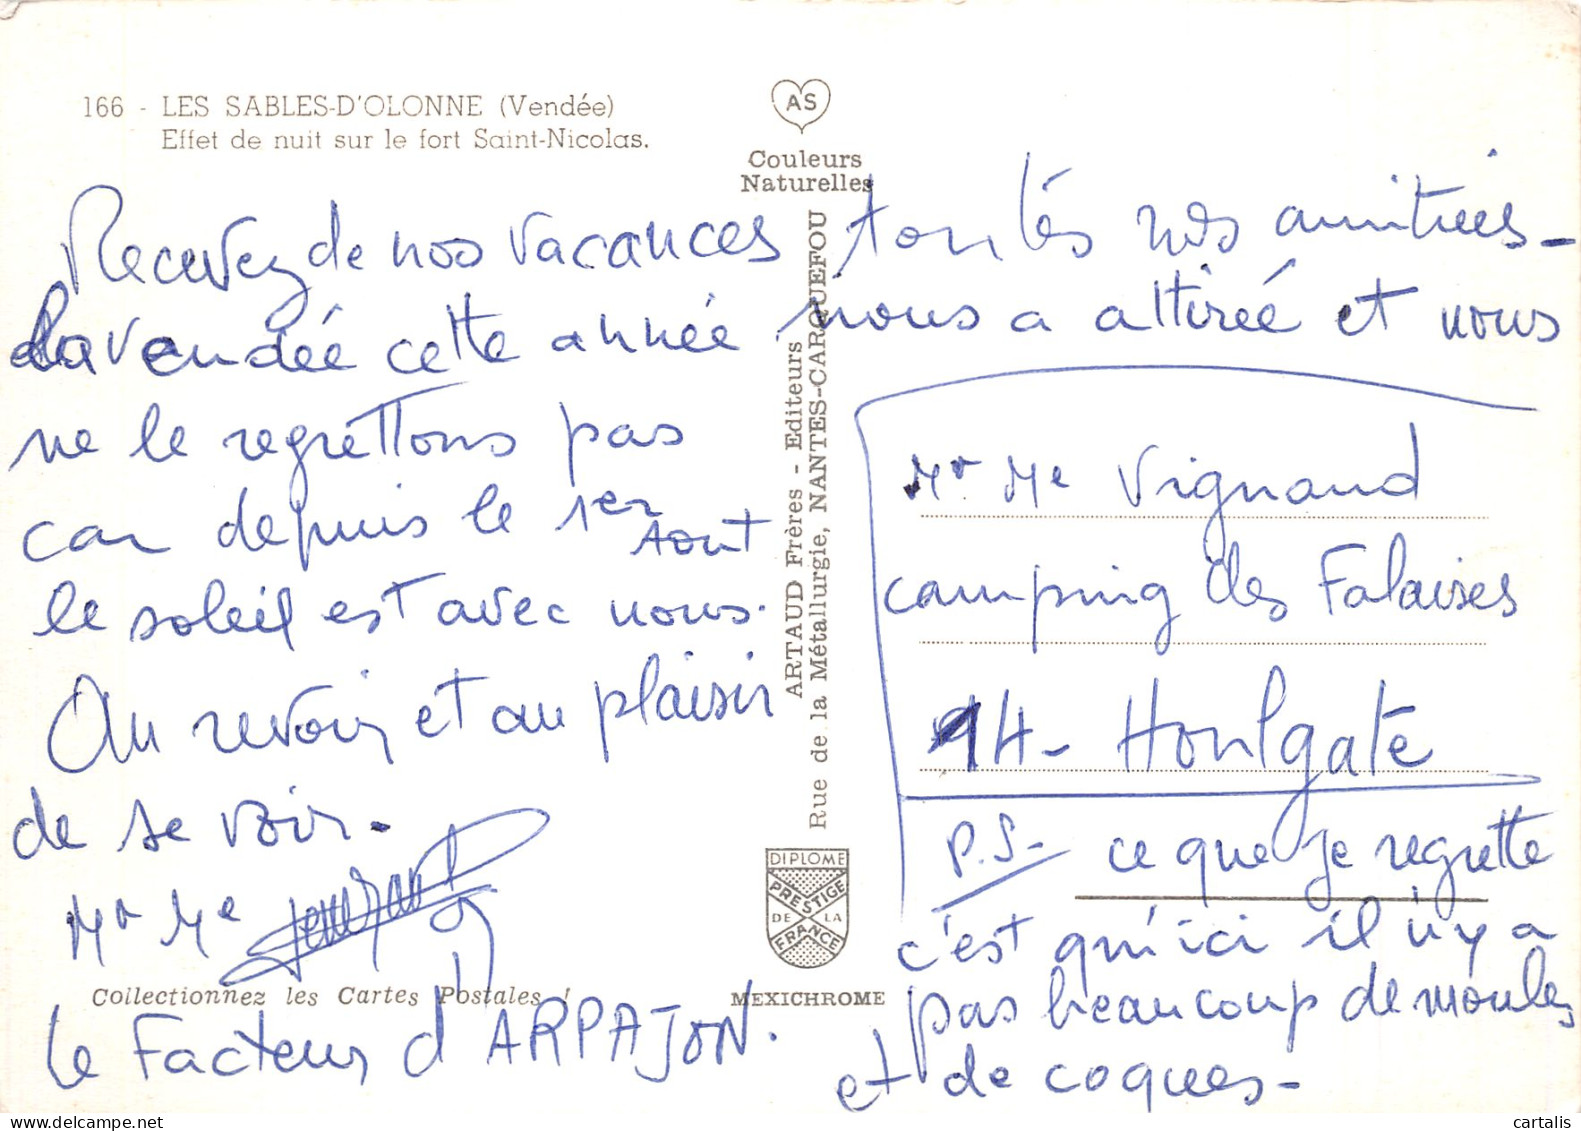 166 - LES SABLES-D'OLONNE (Vendée)
Effet de nuit sur le fort Saint-Nicolas.
AS
Couleurs
Naturelles
Recevez de nos vacances toutes nos amitiées -
La vendée cette année nous a attirée et nous
ne le regrettons pas
car depuis le 1er tout
le soleil est avec nous.
Au revoir et au plaisir
de se voir.
Mr Me
le Facteur d'ARPAJON.
Collectionnez les Cartes Postales !
ARTAUD Frères - Editeurs
Rue de la Métallurgie, NANTES-CARQUEFOU
DIPLOME
PRESTIGE
DE LA
FRANCE
MEXICHROME
Mr Me Vignaud
camping des Falaises
14 - Houlgate
P.S - ce que je regrette
c'est qu'ici il n'y a
pas beaucoup de moules
et de coques -
cartalis